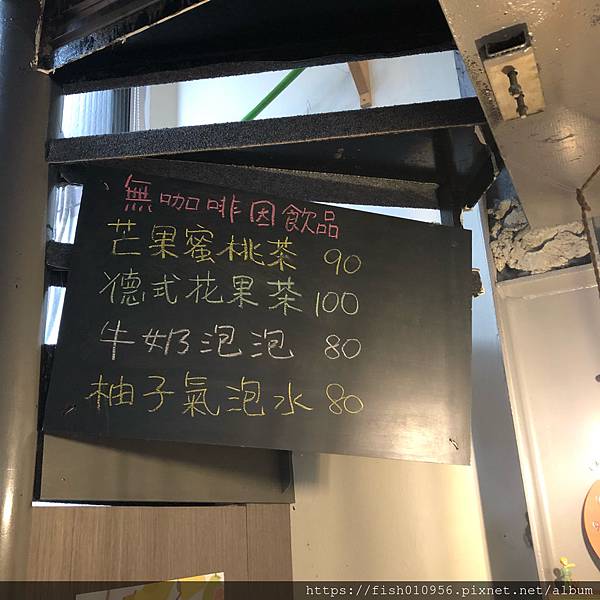 無咖啡因飲品
芒果蜜桃茶 90
德式花果茶 100
牛奶泡泡 80
柚子氣泡水 80
https://fish010956.pixnet.net/album